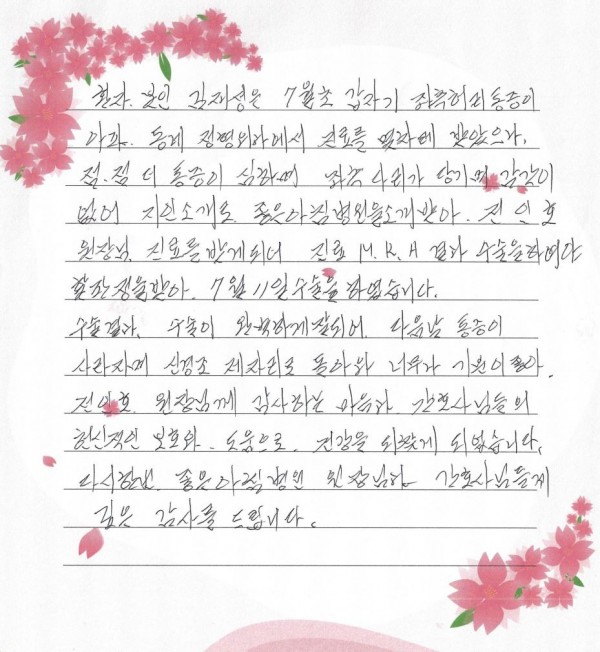 환자. 본인 김재성은 7월초 갑자기 좌측허리통증이
아파. 동네 정형외과에서 진료를 몇차례 받았으나.
점.점 더 통증이 심하며 좌측다리가 당기며 감각이
없어 지인소개로 좋은아침병원을소개받아. 전 인 호
원장님. 진료를받게되어 진료 M.R.A 결과 수술을하여야
할판정을받아. 7월 11일수술을하였습니다.
수술결과. 수술이 완벽하게잘되어. 다음날 통증이
사라지며 신경조 제자리로 돌아와 너무나 기분이좋아.
전인호 원장님께 감사하는 마음과. 간호사님들의
헌신적인 보호와. 도움으로. 건강을 되찾게 되었습니다.
다시한번. 좋은아침병원 원장님과. 간호사님들게
깊은 감사를 드립니다.